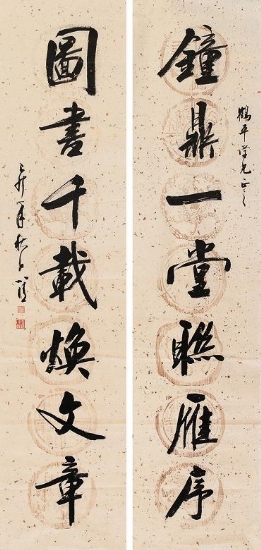 鐘鼎一堂聯雁序
鶴年学兄正之
圖書千載煥文章